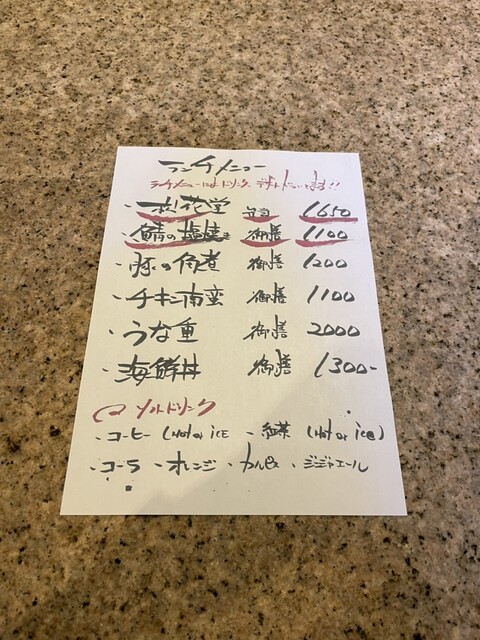 ランチメニュー
ランチメニューはドリンク、デザートがついてます!!
・松花堂 弁当 1650
・鯖の塩焼き 御膳 1100
・豚の角煮 御膳 1200
・チキン南蛮 御膳 1100
・うな重 御膳 2000
・海鮮丼 御膳 1300-
ソフトドリンク
・コーヒー (Hot or ICE ・紅茶 (Hot or ice)
・コーラ ・オレンジ ・カルピス ・ジンジャエール